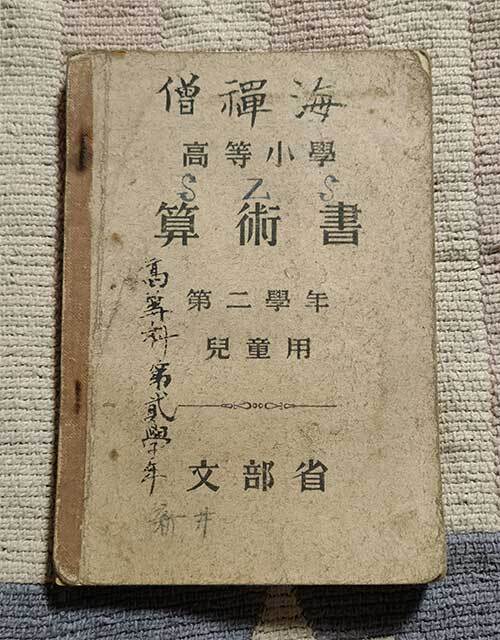 僧禪海
高等小學
S Z S
算術書
第二學年
兒童用
文部省
高等科第貳學年
新井